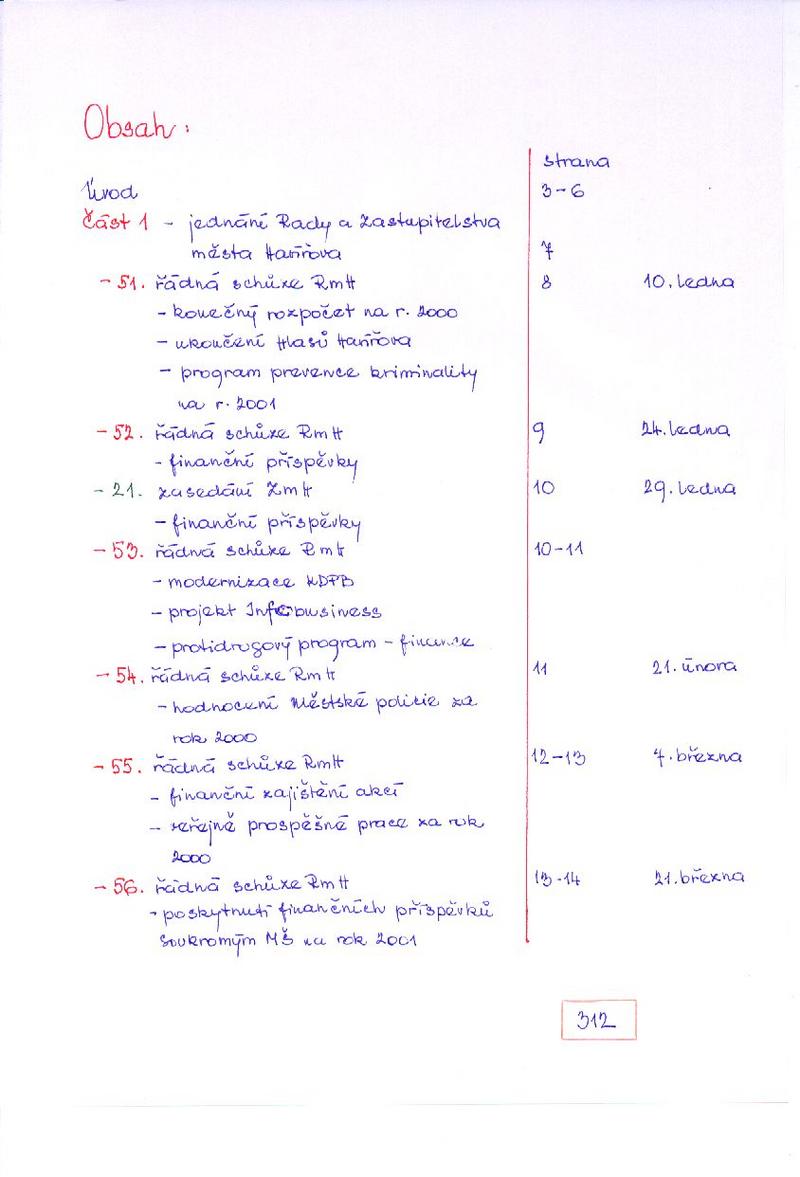 Obsah:
strana
Úvod 3-6
Část 1 - jednání Rady a Zastupitelstva
města Havířova 7
- 51. řádná schůze RmH 8 10. ledna
- konečný rozpočet na r. 2000
- ukončení Hlasů Havířova
- program prevence kriminality
na r. 2001
- 52. řádná schůze RmH 9 24. ledna
- finanční příspěvky
- 21. zasedání ZmH 10 29. ledna
- finanční příspěvky
- 53. řádná schůze RmH 10-11
- modernizace KDPB
- projekt Infobusiness
- protidrogový program - finance
- 54. řádná schůze RmH 11 21. února
- hodnocení Městské policie za
rok 2000
- 55. řádná schůze RmH 12-13 7. března
- finanční zajištění akcí
- veřejně prospěšné prace za rok
2000
- 56. řádná schůze RmH 13-14 21. března
- poskytnutí finančních příspěvků
soukromým MŠ na rok 2001
312